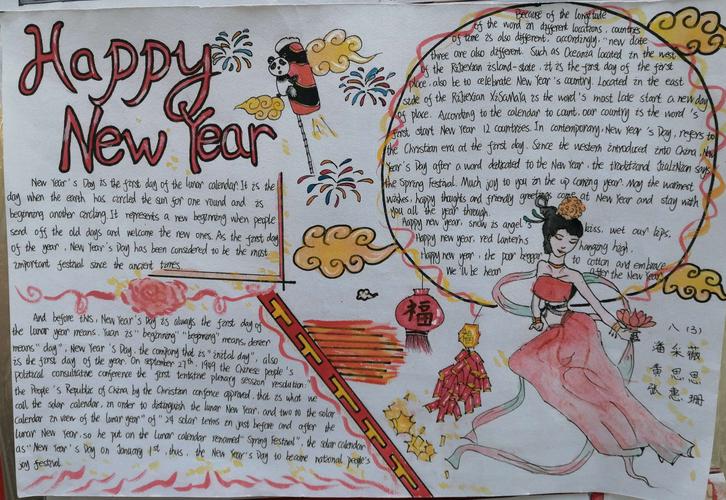 Happy
New Year
New Year's Day is the first day of the lunar calendar. It is the
day when the earth has circled the sun for one round and is
beginning another circling. It represents a new beginning when people
send off the old days and welcome the new ones. As the first day
of the year, New Year's Day has been considered to be the most
important festival since the ancient times.
And before this, New Year's Day is always the first day of
the lunar year means. Yuan is "beginning" "beginning" means, denier
means "day", New Year's Day, the company that is "initial day", also
is the first day of the year. On september 27th 1949 the Chinese people's
political consultative conference the first tentative plenary session resolution:
the People's Republic of China, by the Christian confence approved, that is what we
call the solar calendar, in order to distinguish the lunar New Year, and two to the solar
calendar in view of the lunar year" of "24 solar terms in just before and after the
lunar New Year, so he put on the lunar calendar renamed" Spring Festival", the solar calendar
as "New Year's Day on January 1st, thus, the New Year's Day to became national people's
joy festival.
Because of the longitude
of the word in different locations, countries
of time is also different, accordingly, "new date
three one also different. Such as Oceania located in the west
of the island-state, it is the first day of the first
place, also be to celebrate New Year's country. Located in the east
side of the is the word's most late start a new day
of place. According to the calendar to count, our country is the word's
first start New Year 12 countries. In contemporary, New Year's Day, refers to
the Christian era at the first day. Since the western introduced into China, New
Year's Day after a word dedicated to the New Year, the traditional says
the Spring Festival. Much joy to you in the up coming year. May the warmest
wishes, happy thoughts and friendly greetings come at New Year and stay with
you all the year through.
Happy new year, snow is angel's kiss, wet our lips.
Happy new year, red lanterns hanging high,
Happy new year, the poor beggar to cotton and embrace
We'll be hear after the New Year
福
八(3)
潘采薇
黄思思
张惠珊